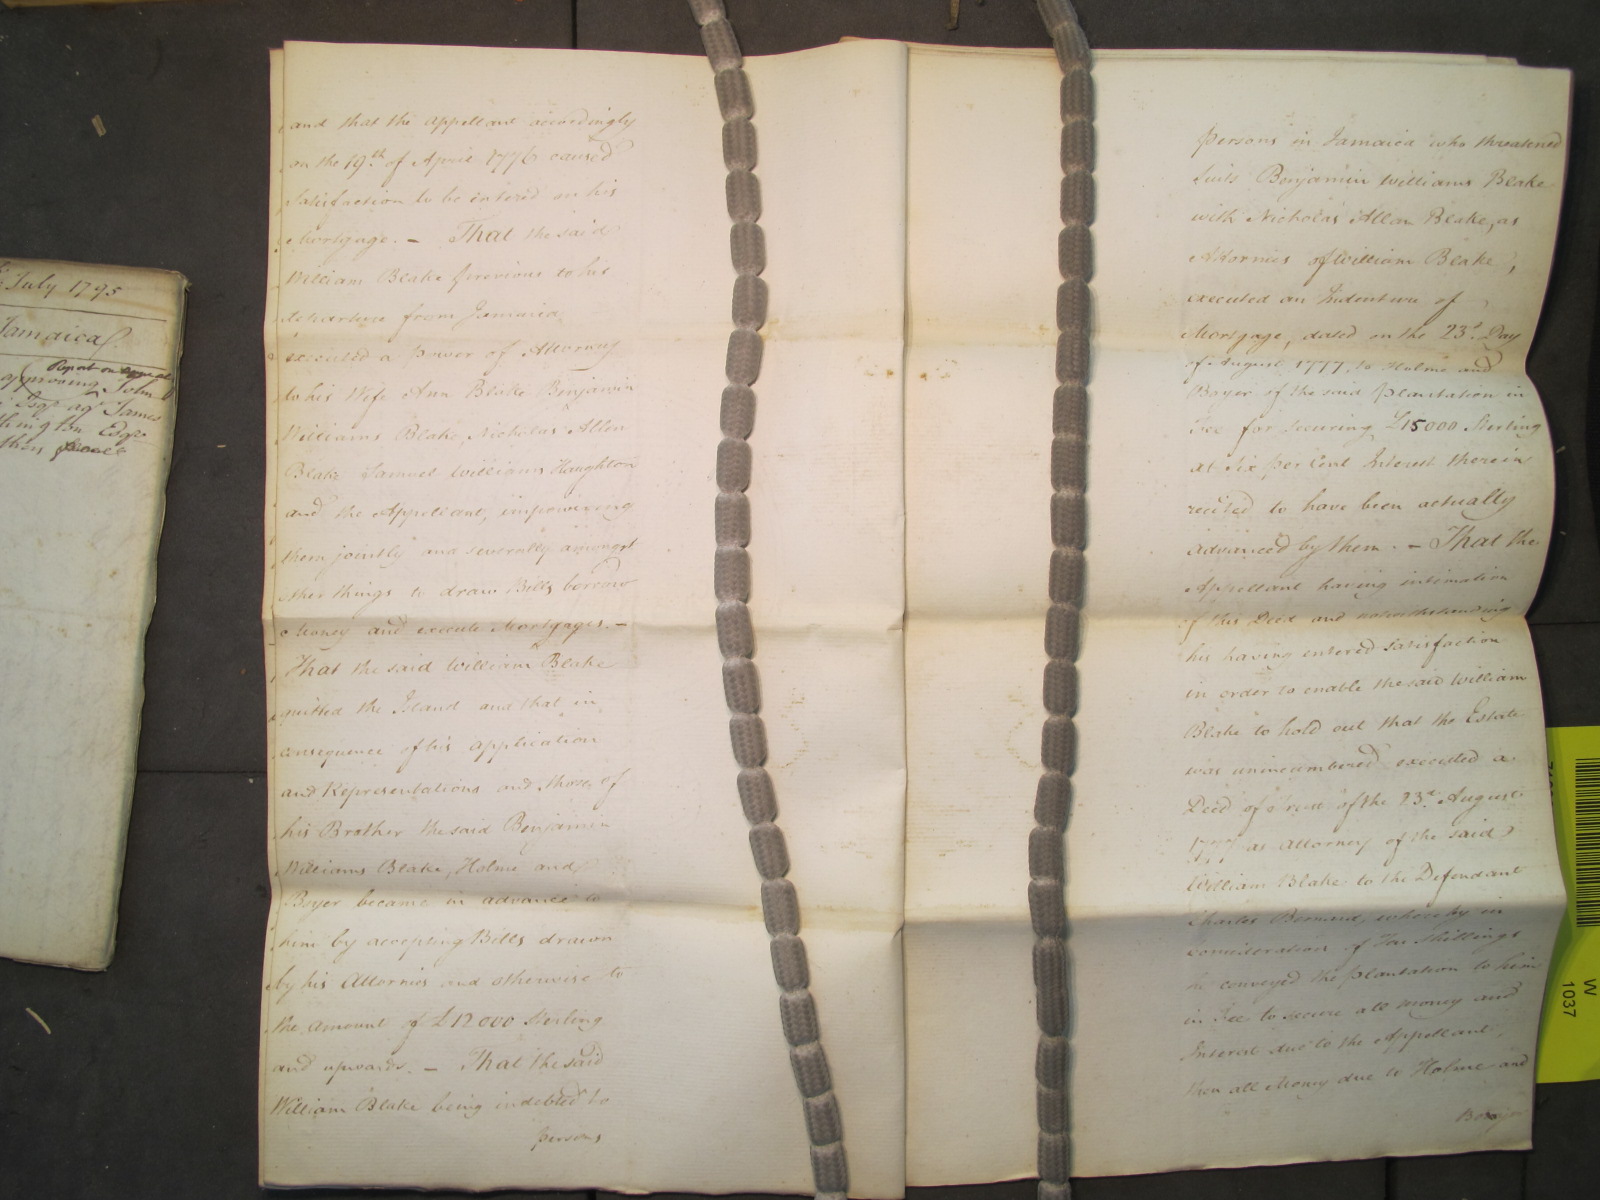 and that the Appellant accordingly
on the 19th of April 1776 caused
Satisfaction to be entered on his
Mortgage. - That the said
William Blake previous to his
departure from Jamaica
executed a Power of Attorney
to his Wife Ann Blake Benjamin
Williams Blake, Nicholas Allen
Blake Samuel Williams Haughton
and the Appellant, impowering
them jointly and severally amongst
other things to draw Bills borrow
Money and execute Mortgages. -
That the said William Blake
quitted the Island and that in
consequence of his application
and Representations and those of
his Brother the said Benjamin
Williams Blake, Holme and
Boyer became in advance to
him by accepting Bills drawn
by his Attornies and otherwise to
the amount of £12000 Sterling
and upwards. - That the said
William Blake being indebted to
persons
persons in Jamaica who threatened
suits Benjamin Williams Blake
with Nicholas Allen Blake, as
Attornies of William Blake,
executed an Indenture of
Mortgage, dated on the 23d Day
of August 1777, to Holme and
Boyer of the said plantation in
Fee for securing £15000 Sterling
at Six per Cent Interest therein
recited to have been actually
advanced by them. - That the
Appellant having intimation
of this Deed and notwithstanding
his having entered satisfaction
in order to enable the said William
Blake to hold out that the Estate
was unincumbered executed a
Deed of Trust of the 23d August
1777 as Attorney of the said
William Blake to the Defendant
Charles whereby in
consideration of Ten Shillings
he conveyed the plantation to him
in Fee to secure all money and
Interest due to the Appellant,
then all Money due to Holme and
Boyer
July 1795
Jamaica
Report on appeal
approving John
Esqr agt James
Esqr
others
W
1037